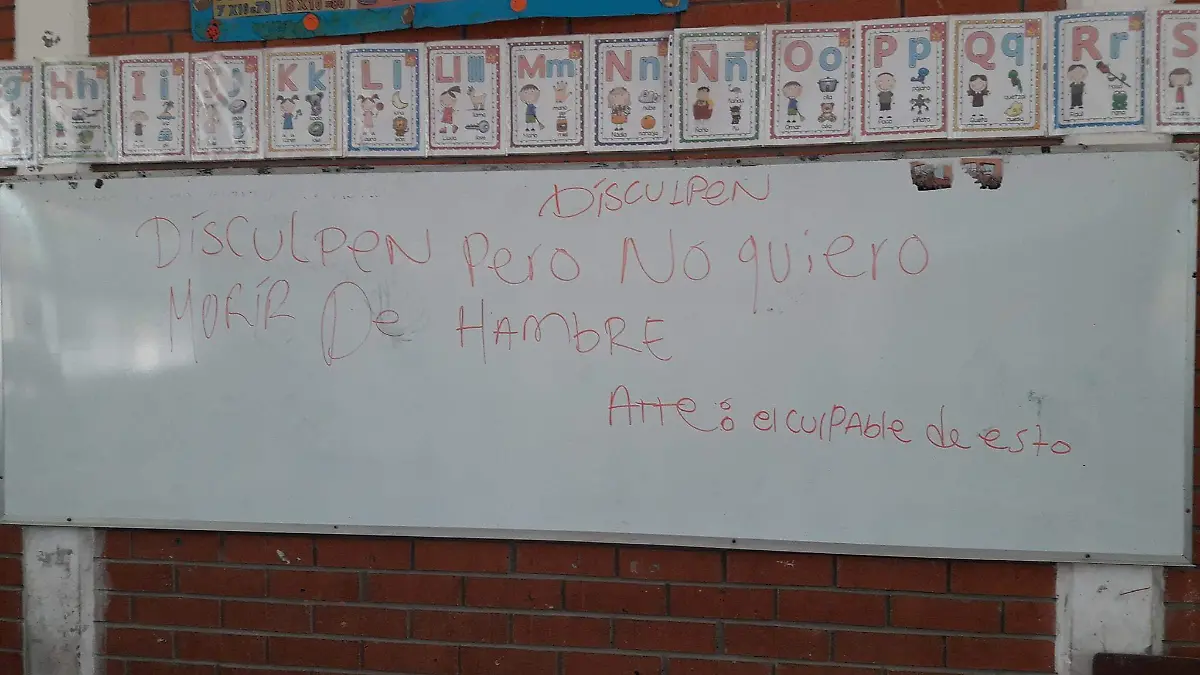 Y X 10 = 70
8 X 10 = 80
g
Hh
Ii
Jj
Kk
Ll
Ll ll
Mm
Nn
Ññ
Oo
Pp
Qq
Rr
S
DISCULPEN
DISCULPEN Pero No quiero
MORIR De HAMBRE
Atte: el culPAble de esto